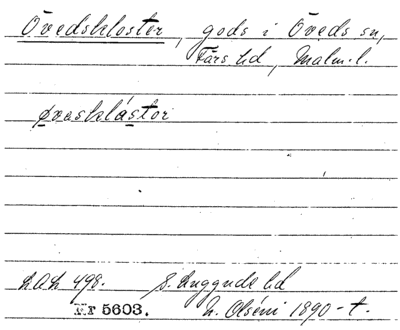 Övedskloster, gods i Öveds sn,
Färs hd, Malm. l.
øvesklástor
LAL 498. S. Luggude hd
Nr 5603. N. Olséni 1890-t.